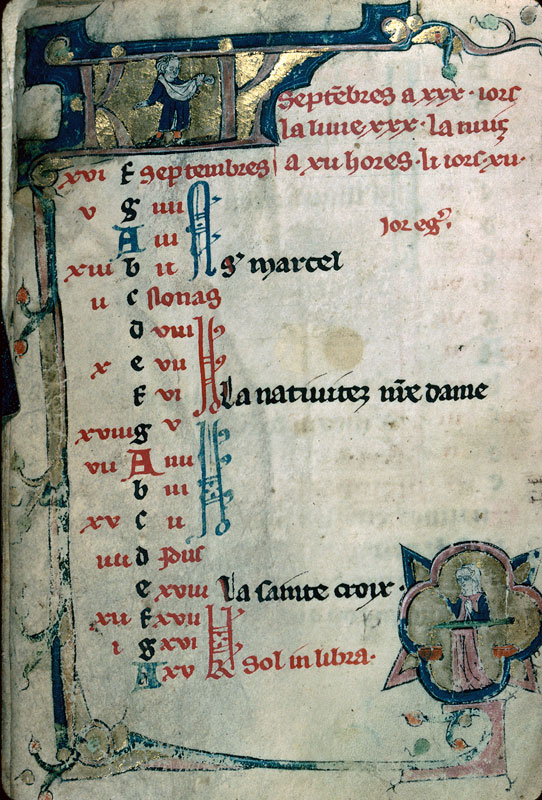 KL
Septẽbres a xxx · iors
la lune xxx · la nuis
xvi f Septembres a xii hores · li iors · xii ·
v g iiii N
A iii Ior eg͛
xiii b ii N S' marcel
ii c Nonas
d viii
x e vii
f vi La natiuitez nr̃e dame
xviii g v
vii A iiii
b iii
xv c ii
iiii d Idus
e xviii La sainte croix ·
xii f xvii
i g xvi
A xv K Sol in libra ·